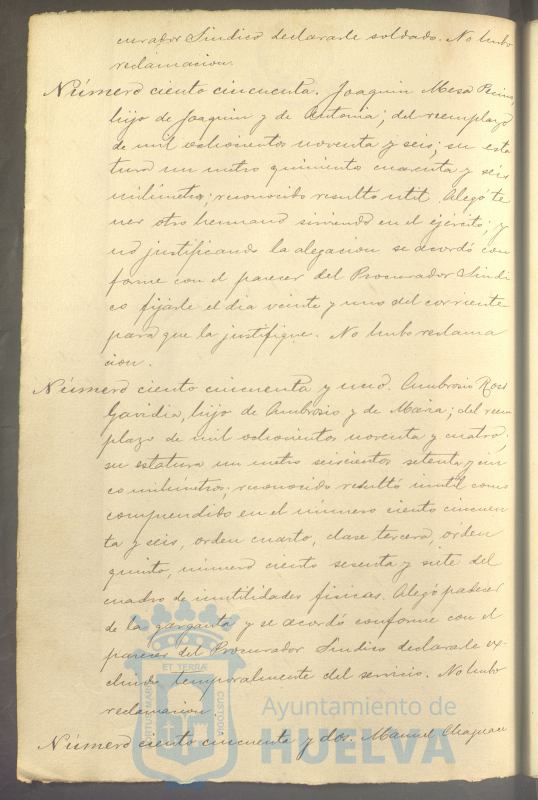 curador Síndico declararle soldado. No hubo
reclamacion.
Número ciento cincuenta. Joaquin Mesa
hijo de Joaquin y de Antonia; del reemplazo
de mil ochocientos noventa y seis; su esta
tura un metro quinientos cuarenta y seis
milímetros; reconocido resultó util. Alegó te
ner otro hermano sirviendo en el ejército; y
no justificando la alegacion se acordó con
forme con el parecer del Procurador Síndi
co fijarle el dia veinte y uno del corriente
para que la justifique. No hubo reclama
cion.
Número ciento cincuenta y uno. Ambrosio
Gavidia, hijo de Ambrosio y de María; del reem
plazo de mil ochocientos noventa y cuatro;
su estatura un metro seiscientos setenta y cin
co milímetros; reconocido resultó inutil como
comprendido en el número ciento cincuen
ta y seis, orden cuarto, clase tercera, orden
quinto, número ciento sesenta y siete del
cuadro de inutilidades físicas. Alegó padecer
de la garganta y se acordó conforme con el
parecer del Procurador Síndico declararle ex-
cluido temporalmente del servicio. No hubo
reclamacion
Número ciento cincuenta y dos. Manuel
PORTUS MARIS
ET TERRÆ
CUSTODIA
Ayuntamiento de
HUELVA